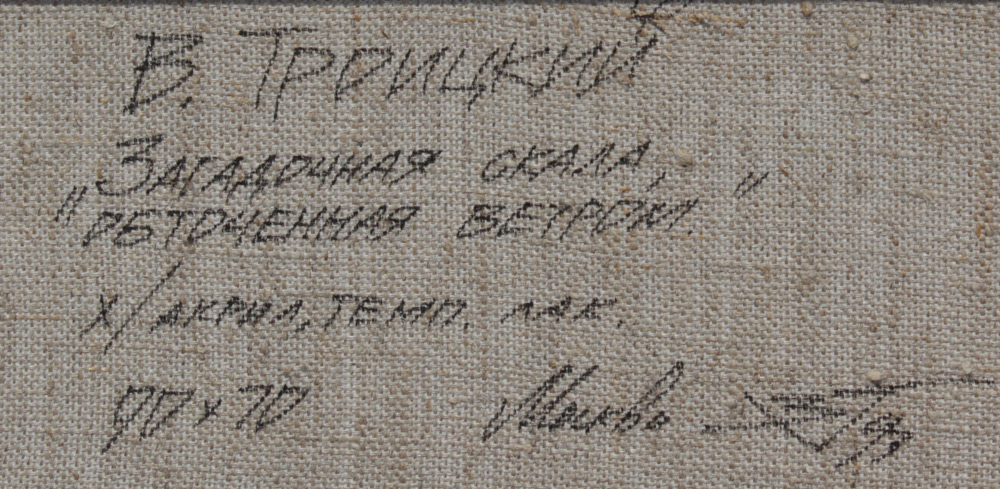 В. ТРОИЦКИЙ
„ЗАГАДОЧНАЯ СКАЛА,
ОБТОЧЕННАЯ ВЕТРОМ."
Х/АКРИЛ, ТЕМП. ЛАК.
90 х 70 Москва